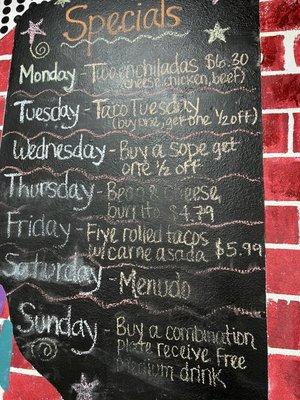 Specials
Monday - Two enchiladas $6.30
(cheese, chicken, beef)
Tuesday - Taco Tuesday
(buy one, get one 1/2 off)
Wednesday - Buy a sope get
one 1/2 off
Thursday - Bean & cheese,
burrito $4.79
Friday - Five rolled tacos
w/ carne asada $5.99
Saturday - Menudo
Sunday - Buy a combination
plate receive free
medium drink